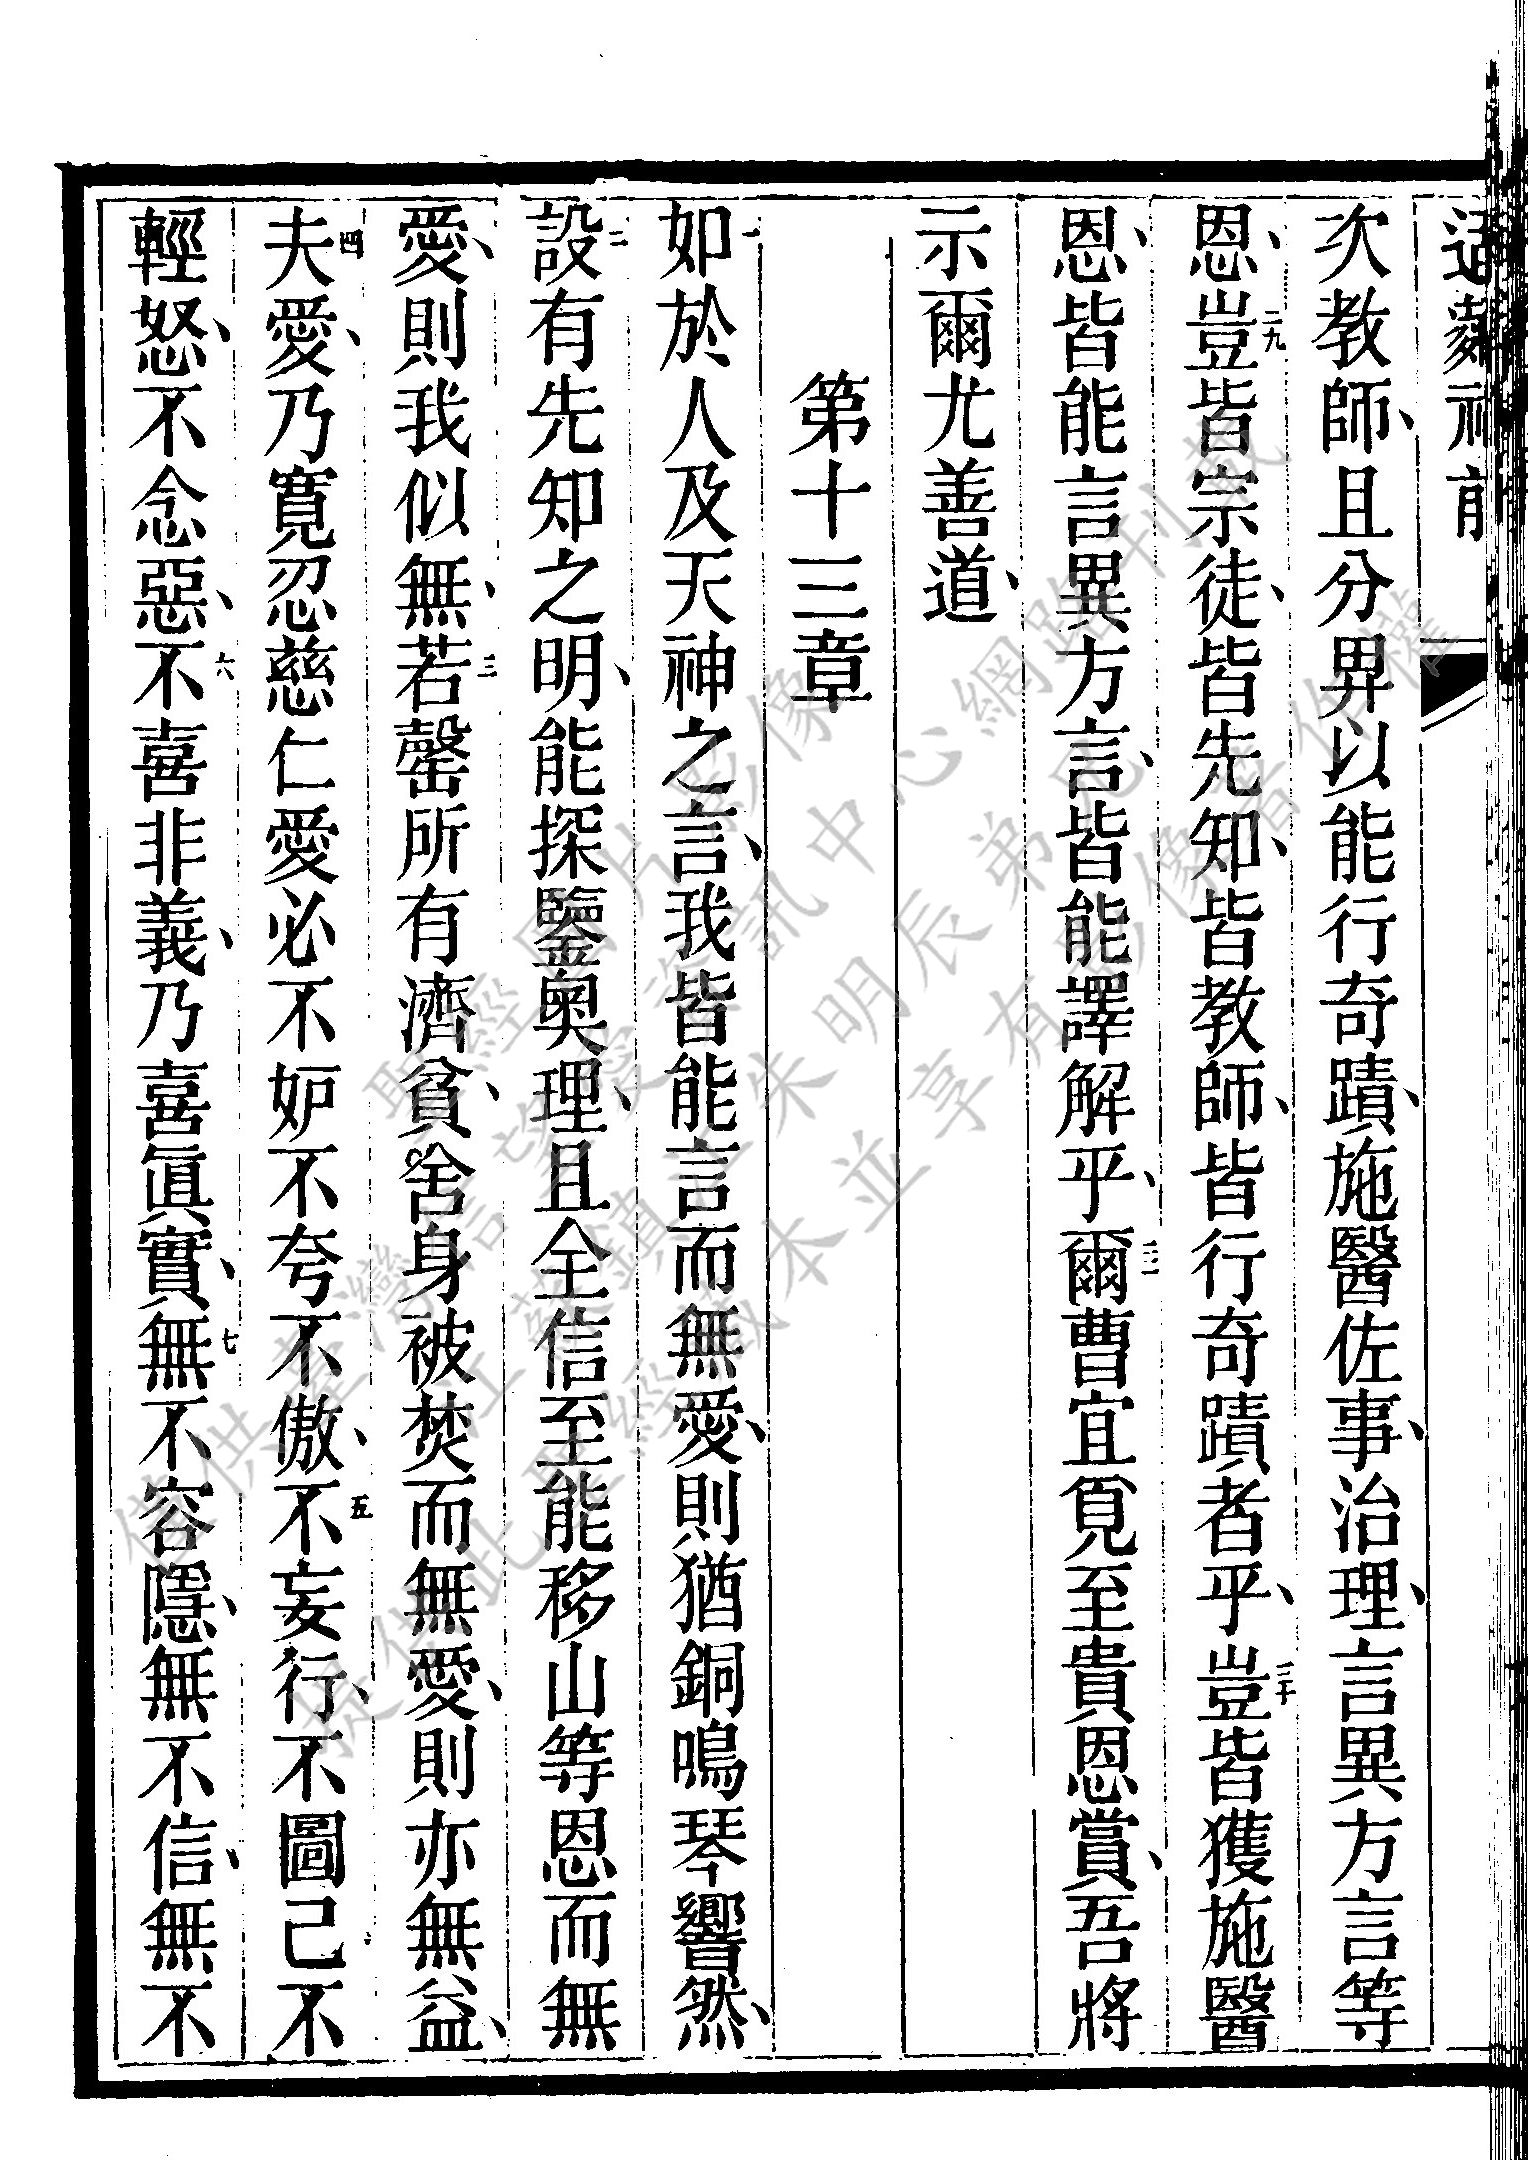 次教師、且分畀以能行奇蹟、施醫佐事、治理、言異方言等
恩、二九豈皆宗徒、皆先知、皆教師、皆行奇蹟者乎、三十豈皆獲施醫
恩、皆能言異方言、皆能譯解乎、三一爾曹宜覓至貴恩賞、吾將
示爾尤善道、
第十三章
一如於人及天神之言、我皆能言而無愛、則猶銅鳴琴響然、
二設有先知之明、能探鑒奧理、且全信至能移山等恩而無
愛、則我似無、三若罄所有濟貧、舍身被焚而無愛、則亦無益、
四夫愛、乃寬忍慈仁愛必不妒不夸不傲、五不妄行、不圖己、不
輕怒、不念惡、六不喜非義、乃喜眞實、七無不容隱、無不信、無不
僅供臺灣信望愛資訊中心網路刊載